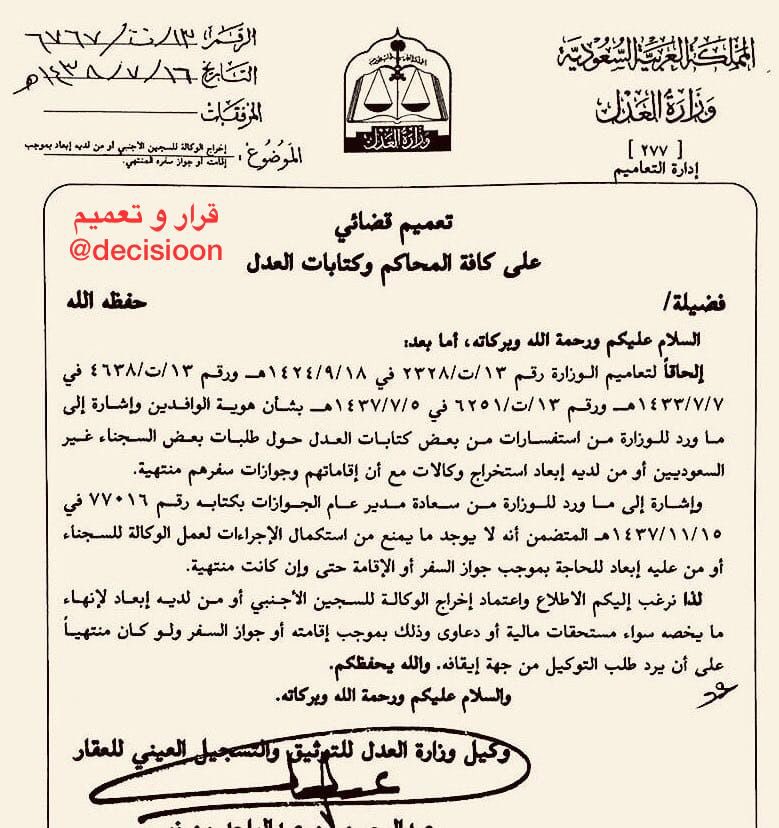 المملكة العربية السعودية
وزارة العدل
[ ٢٧٧ ]
إدارة التعاميم
وزارة العدل
الرقم: ١٣/ت/٦٧٦٧
التاريخ ١٦/٧/١٤٣٨هـ
المرفقات
الموضوع: إخراج الوكالة للسجين الأجنبي أو من لديه إبعاد بموجب
إقامته أو جواز سفره المنتهي.
قرار و تعميم
@decisioon
تعميم قضائي
على كافة المحاكم وكتابات العدل
فضيلة/ حفظه الله
السلام عليكم ورحمة الله وبركاته، أما بعد:
إلحاقاً لتعاميم الوزارة رقم ١٣/ت/٢٣٢٨ في ١٤٢٤/٩/١٨هـ ورقم ١٣/ت/٤٦٣٨ في
١٤٣٣/٧/٧هـ ورقم ١٣/ت/٦٢٥١ في ١٤٣٧/٧/٥هـ بشأن هوية الوافدين وإشارة إلى
ما ورد للوزارة من استفسارات من بعض كتابات العدل حول طلبات بعض السجناء غير
السعوديين أو من لديه إبعاد استخراج وكالات مع أن إقاماتهم وجوازات سفرهم منتهية.
وإشارة إلى ما ورد للوزارة من سعادة مدير عام الجوازات بكتابه رقم ٧٧٠١٦ في
١٤٣٧/١١/١٥هـ المتضمن أنه لا يوجد ما يمنع من استكمال الإجراءات لعمل الوكالة للسجناء
أو من عليه إبعاد للحاجة بموجب جواز السفر أو الإقامة حتى وإن كانت منتهية.
لذا نرغب إليكم الاطلاع واعتماد إخراج الوكالة للسجين الأجنبي أو من لديه إبعاد لإنهاء
ما يخصه سواء مستحقات مالية أو دعاوى وذلك بموجب إقامته أو جواز السفر ولو كان منتهياً
على أن يرد طلب التوكيل من جهة إيقافه. والله يحفظكم.
والسلام عليكم ورحمة الله وبركاته.
وكيل وزارة العدل للتوثيق والتسجيل العيني للعقار